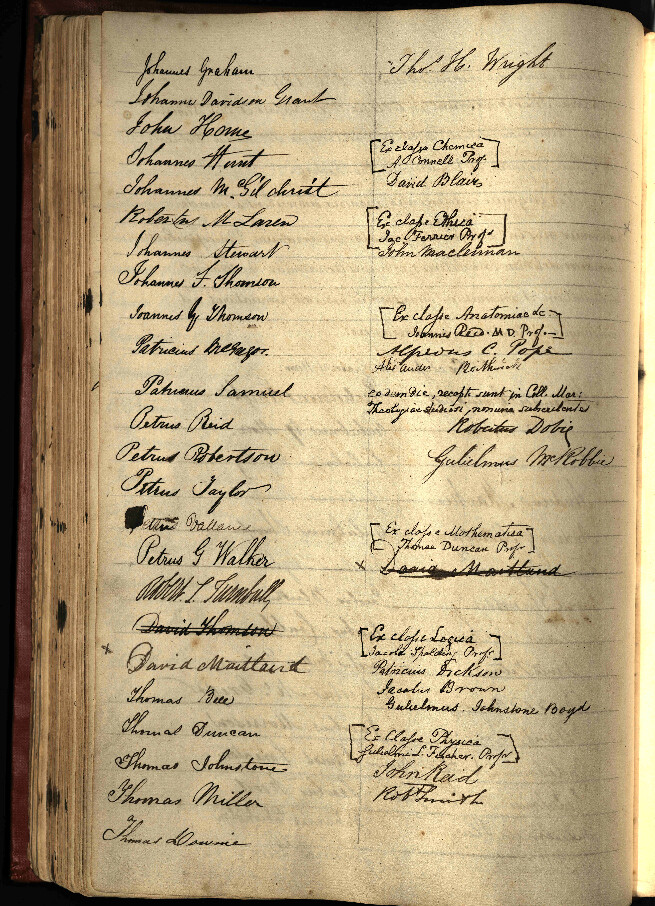 Johannes Graham
Johannes Davidson Grant
John Home
Johannes Hunt
Johannes McGilchrist
Robertus McLaren
Johannes Stewart
Johannes F. Thomson
Joannes G Thomson
Patricius McGregor.
Patricius Samuel
Petrus Reid
Petrus Robertson
Petrus Taylor
Petrus
Petrus G Walker
Robert L Turnbull
David Thomson
x David Maitland
Thomas Bell
Thomas Duncan
Thomas Johnstone
Thomas Miller
Thomas Downie
Thos. H. Wright
Ex classe Chemica
A. Connell Prof.
David Blair
Ex classe Ethica
Jac. Ferrier Profr
John Maclennan
Ex classe Anatomiae &c.
Joannis Reid. M D. Prof.
Alfredus C. Pope
Alexander
eodem die, recepti sunt in Coll. Mar:
Theologiae studiosi, nomina subscribentes
Robertus Dobie
Gulielmus McRobbie
Ex classe Mathematica
Thomae Duncan Profr
x David Maitland
Ex classe Logica
Jacobi Spalding Profr
Patricius Dickson
Jacobus Brown
Gulielmus. Johnstone Boyd
Ex Classe Physica
Gulielmi L. Fischer. Profr
John Reid
Robt Smith